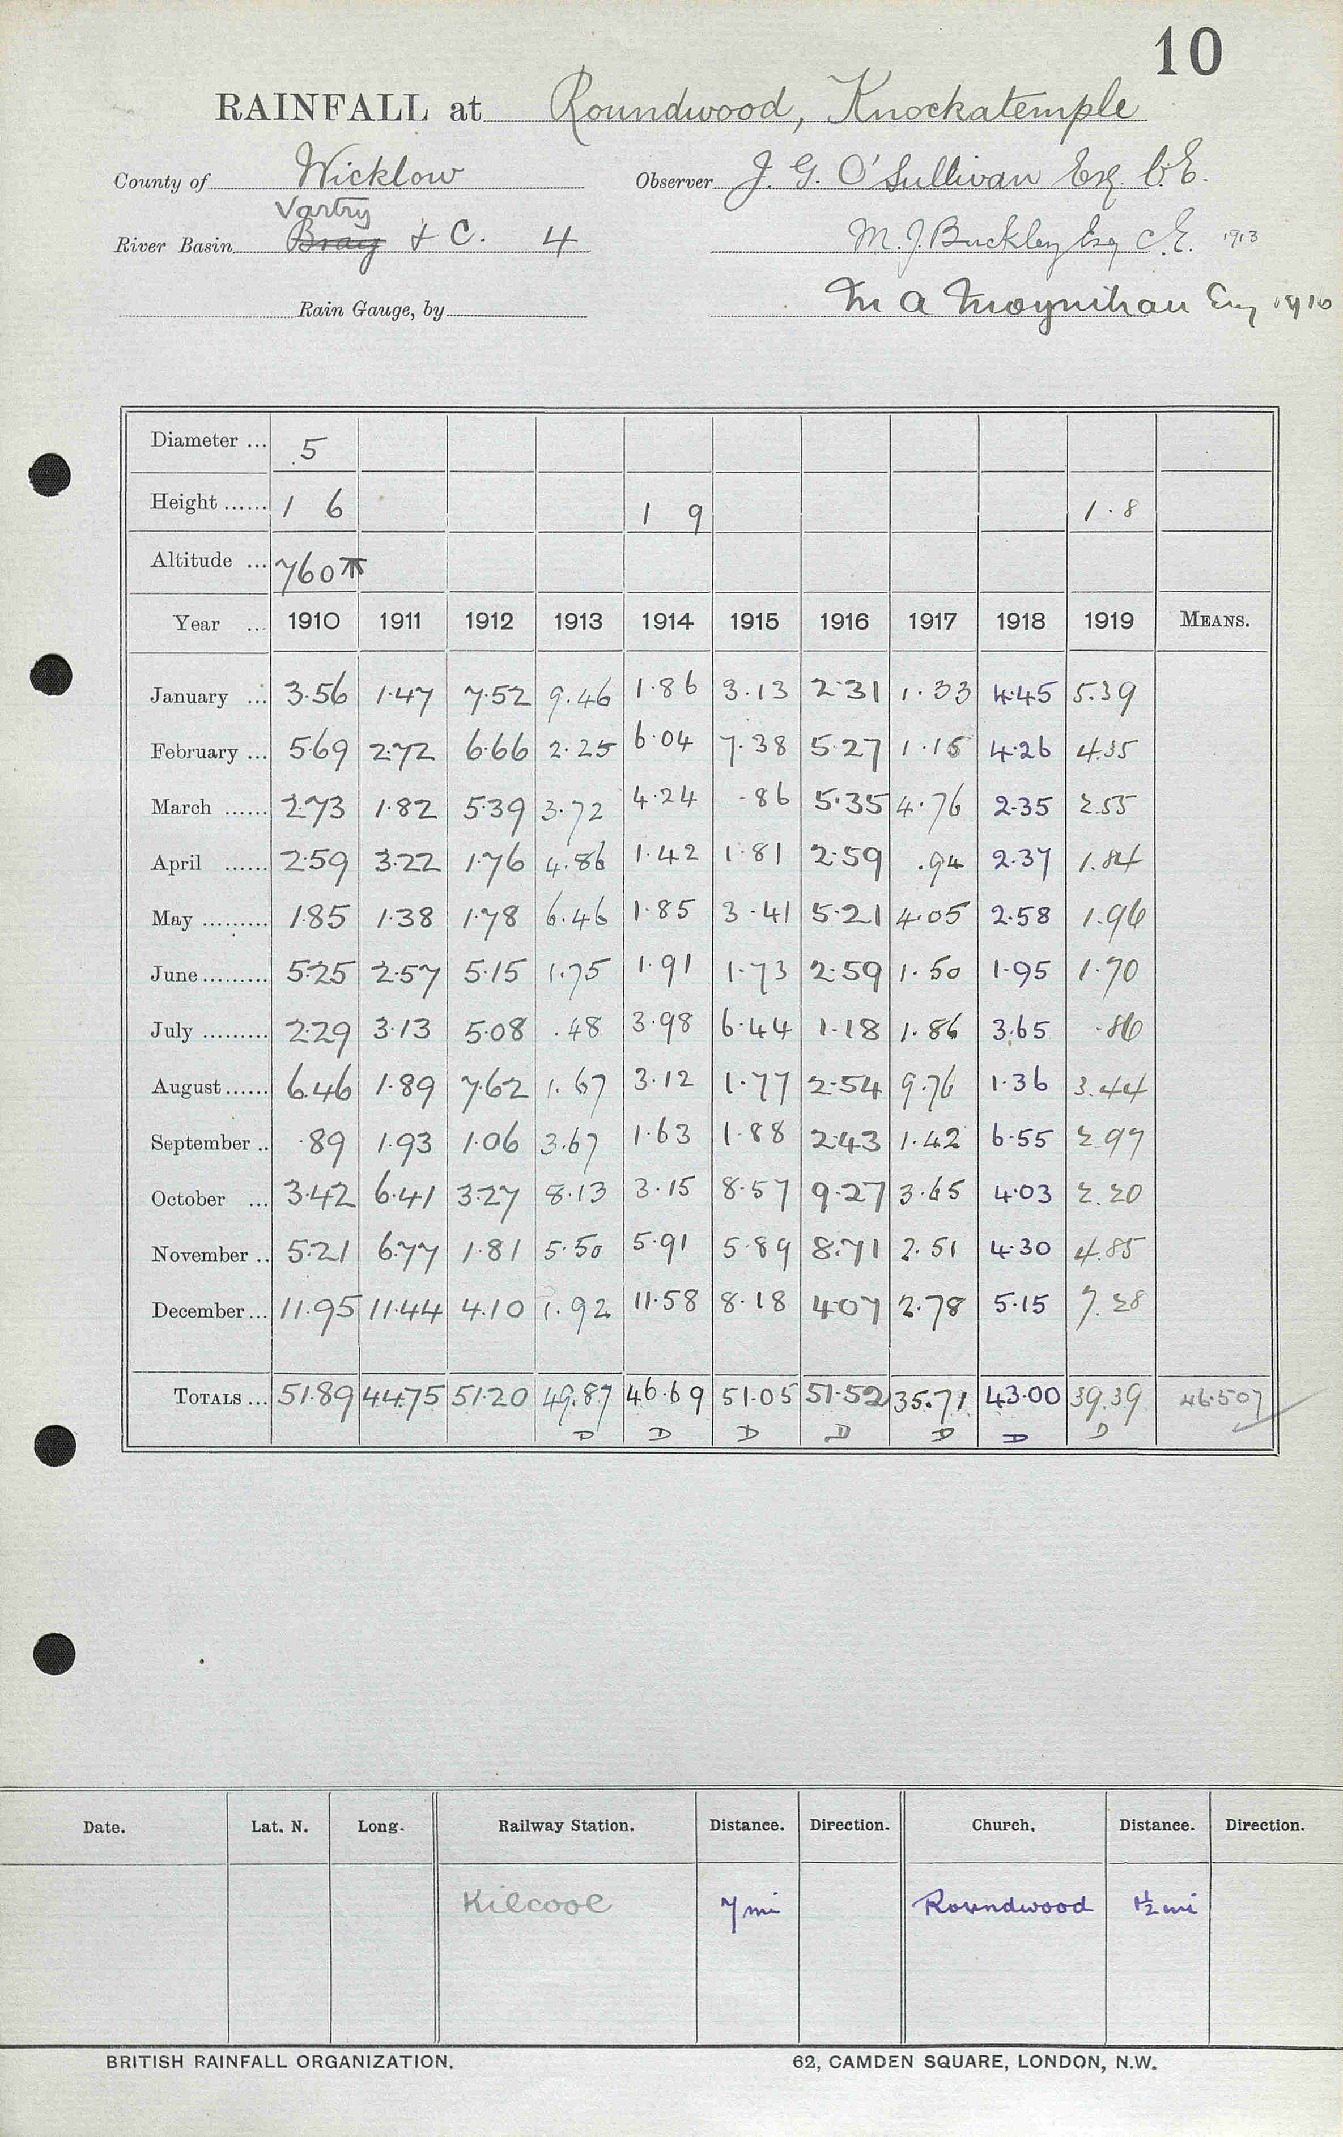 10
RAINFALL at Roundwood, Knockatemple
County of Wicklow Observer J. G. O'Sullivan Esq. C.E.
Vartry
River Basin Bray & C. 4 M. J. Buckley Esq C.E. 1913
Rain Gauge, by M A Moynihan Esq
Diameter ... 5
Height ...... 1 6 1 9 1.8
Altitude ... 760
Year ... 1910 1911 1912 1913 1914 1915 1916 1917 1918 1919 MEANS.
January ... 3.56 1.47 7.52 9.46 1.86 3.13 2.31 1.33 4.45 5.39
February ... 5.69 2.72 6.66 2.25 6.04 7.38 5.27 1.15 4.26 4.35
March ...... 2.73 1.82 5.39 3.72 4.24 .86 5.35 4.76 2.35 2.55
April ...... 2.59 3.22 1.76 4.86 1.42 1.81 2.59 .94 2.37 1.84
May ......... 1.85 1.38 1.78 6.46 1.85 3.41 5.21 4.05 2.58 1.96
June ......... 5.25 2.57 5.15 1.75 1.91 1.73 2.59 1.50 1.95 1.70
July ......... 2.29 3.13 5.08 .48 3.98 6.44 1.18 1.86 3.65 .86
August ...... 6.46 1.89 7.62 1.67 3.12 1.77 2.54 9.76 1.36 3.44
September .. .89 1.93 1.06 3.67 1.63 1.88 2.43 1.42 6.55 2.97
October ... 3.42 6.41 3.27 8.13 3.15 8.57 9.27 3.65 4.03 2.20
November .. 5.21 6.77 1.81 5.50 5.91 5.89 8.71 2.51 4.30 4.85
December ... 11.95 11.44 4.10 1.92 11.58 8.18 4.07 2.78 5.15 7.28
TOTALS ... 51.89 44.75 51.20 49.87 46.69 51.05 51.52 35.71 43.00 39.39 46.507
D D D D D D D
Date. Lat. N. Long. Railway Station. Distance. Direction. Church. Distance. Direction.
Kilcool 7 mi Roundwood 1½ mi
BRITISH RAINFALL ORGANIZATION. 62, CAMDEN SQUARE, LONDON, N.W.